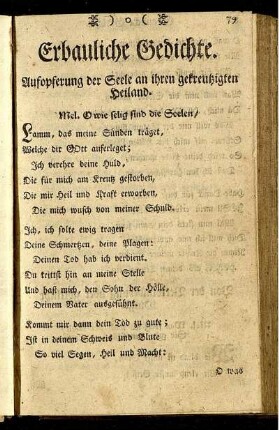 ) o ( 79
Erbauliche Gedichte.
Aufopferung der Seele an ihren gekreutzigten
Heiland.
Mel. O wie selig sind die Seelen,
Lamm, das meine Sünden träget,
Welche dir GOtt auferleget;
Ich verehre deine Huld,
Die für mich am Kreutz gestorben,
Die mir Heil und Kraft erworben,
Die mich wusch von meiner Schuld.
Ich, ich solte ewig tragen
Deine Schmertzen, deine Plagen:
Deinen Tod hab ich verdient.
Du trittst hin an meine Stelle
Und hast mich, den Sohn der Hölle,
Deinem Vater ausgesühnt.
Kommt mir dann dein Tod zu gute;
Ist in deinem Schweis und Blute
So viel Segen, Heil und Macht:
O was